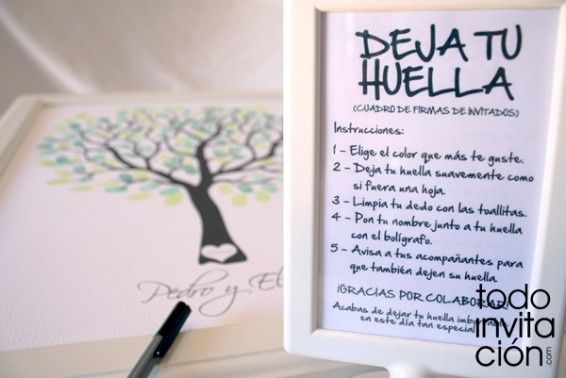 DEJA TU
HUELLA
(CUADRO DE FIRMAS DE INVITADOS)
Instrucciones:
1 - Elige el color que más te guste.
2 - Deja tu huella suavemente como
si fuera una hoja.
3 - Limpia tu dedo con las toallitas.
4 - Pon tu nombre junto a tu huella
con el bolígrafo.
5 - Avisa a tus acompañantes para
que también dejen su huella.
¡GRACIAS POR COLABORAR!
Acabas de dejar tu huella
en este día tan especial
Pedro y El
todo
invita
ción.com